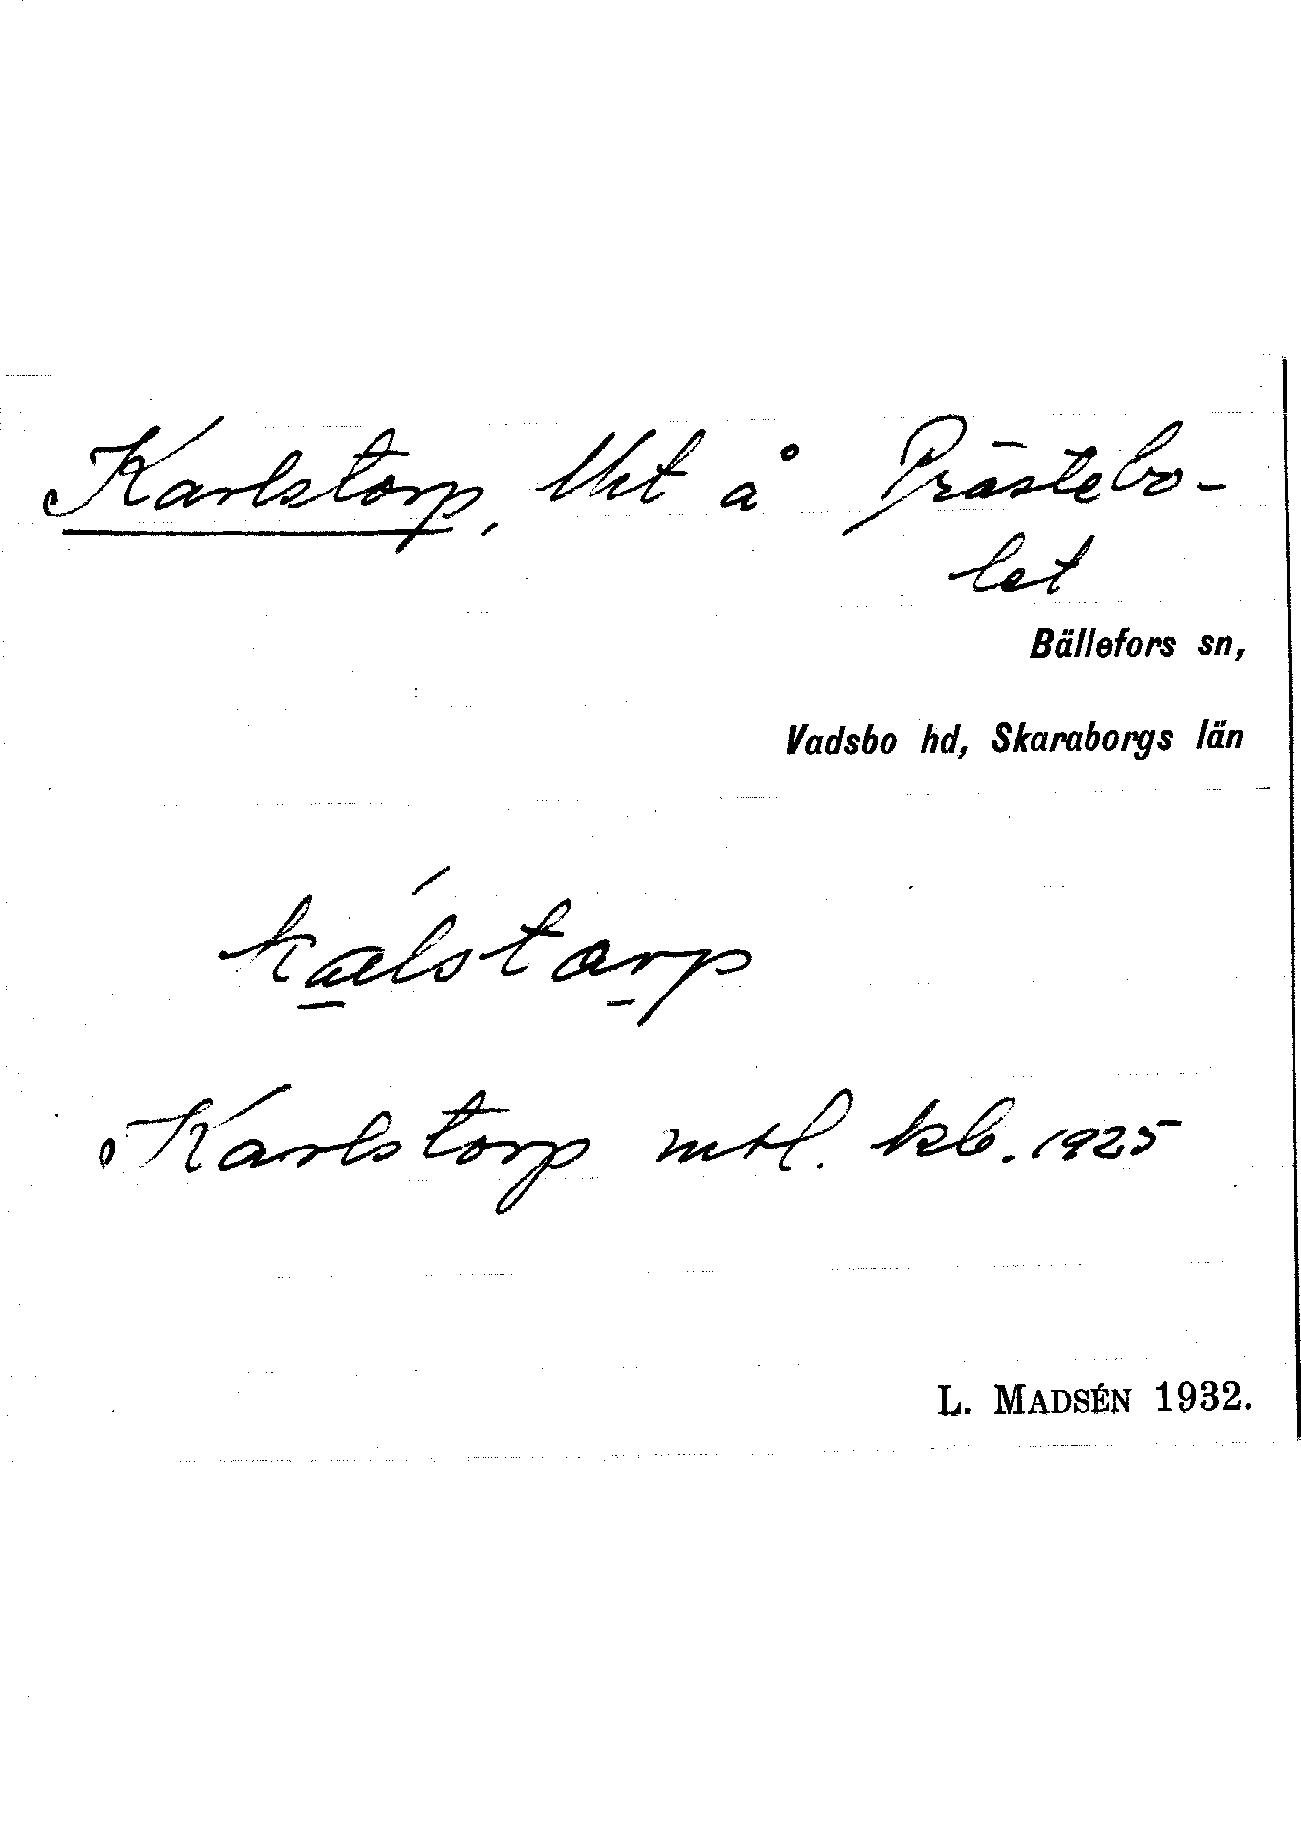 Karlstorp, lht å Prästebo-
let
Bällefors sn,
Vadsbo hd, Skaraborgs län
kálstarp
Karlstorp mtl. kb. 1925
L. MADSÉN 1932.